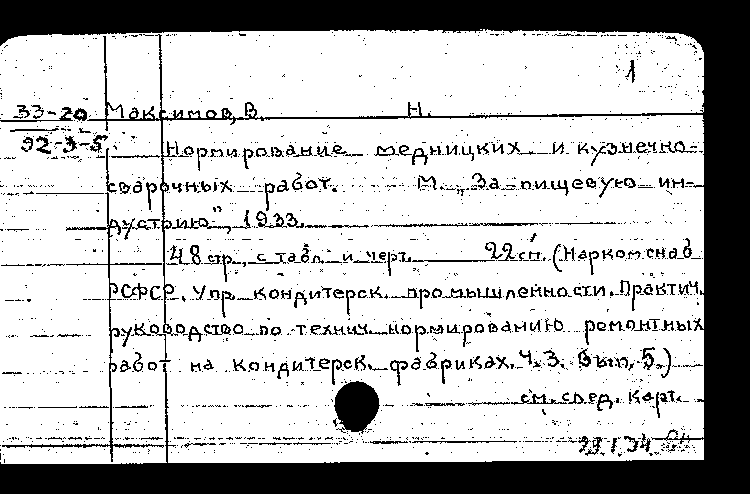 1
33-20 Максимов, В. Н.
92-3-5.
Нормирование медницких и кузнечно-
сварочных работ. М. „За пищевую ин-
дустрию", 1933.
48 стр., с табл. и черт. 22 см. (Наркомснаб
РСФСР. Упр. кондитерск. промышленности. Практич.
руководство по технич. нормированию ремонтных
работ на кондитерск. фабриках. Ч. 3. Вып. 5.)
см. след. карт.
29.1.34